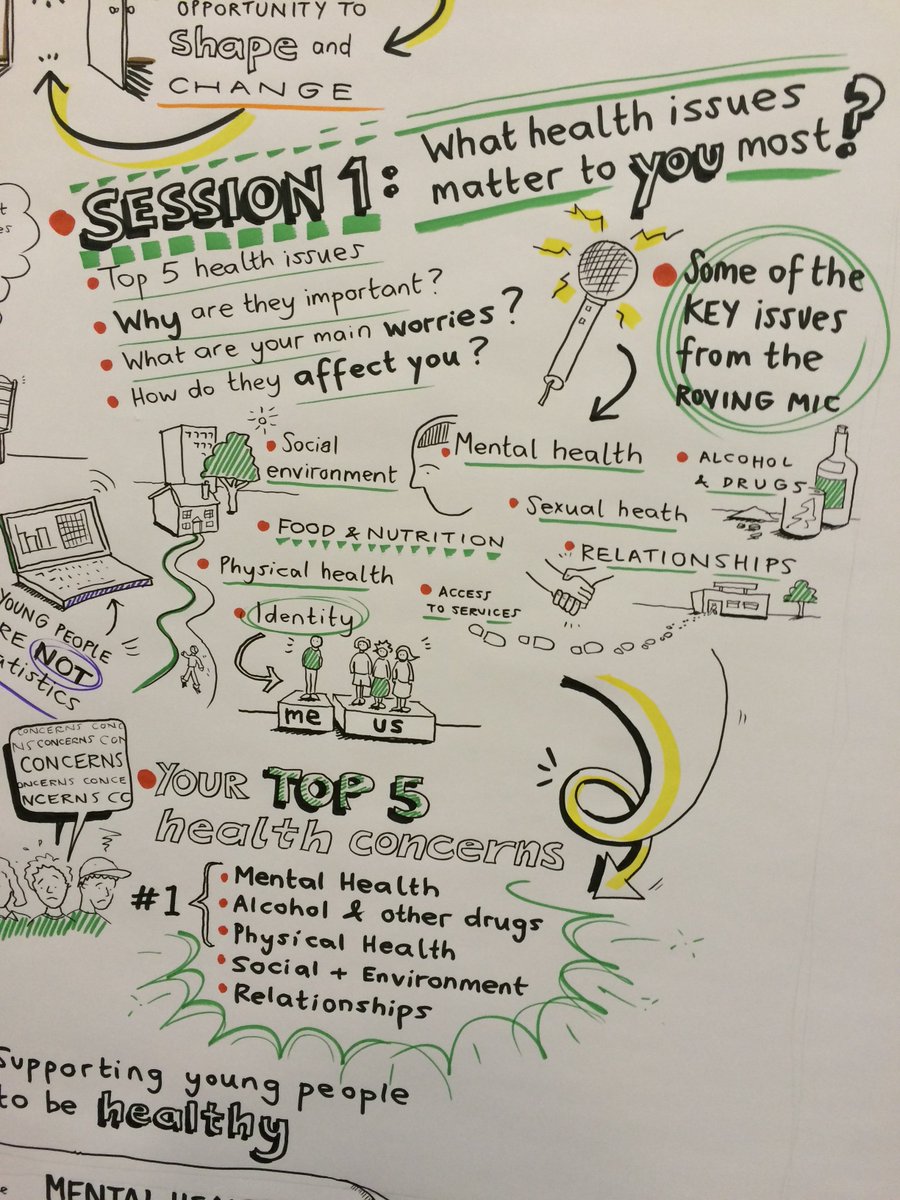 OPPORTUNITY TO
Shape and
CHANGE
SESSION 1:
What health issues
matter to you most?
• Top 5 health issues
• Why are they important?
• What are your main worries?
• How do they affect you?
• Some of the
KEY issues
from the
ROVING MIC
• Social
environment
• Mental health
• ALCOHOL
& DRUGS
• Sexual heath
• FOOD & NUTRITION
• RELATIONSHIPS
• Physical health
• ACCESS
TO SERVICES
• Identity
me
us
YOUNG PEOPLE
RE NOT
atistics
CONCERNS CONC
NS CONCERNS CON
CONCERNS
ONCERNS CONCE
NCERNS CO
• YOUR TOP 5
health concerns
#1
• Mental Health
• Alcohol & other drugs
• Physical Health
• Social + Environment
• Relationships
Supporting young people
to be healthy
MENTAL HEAL